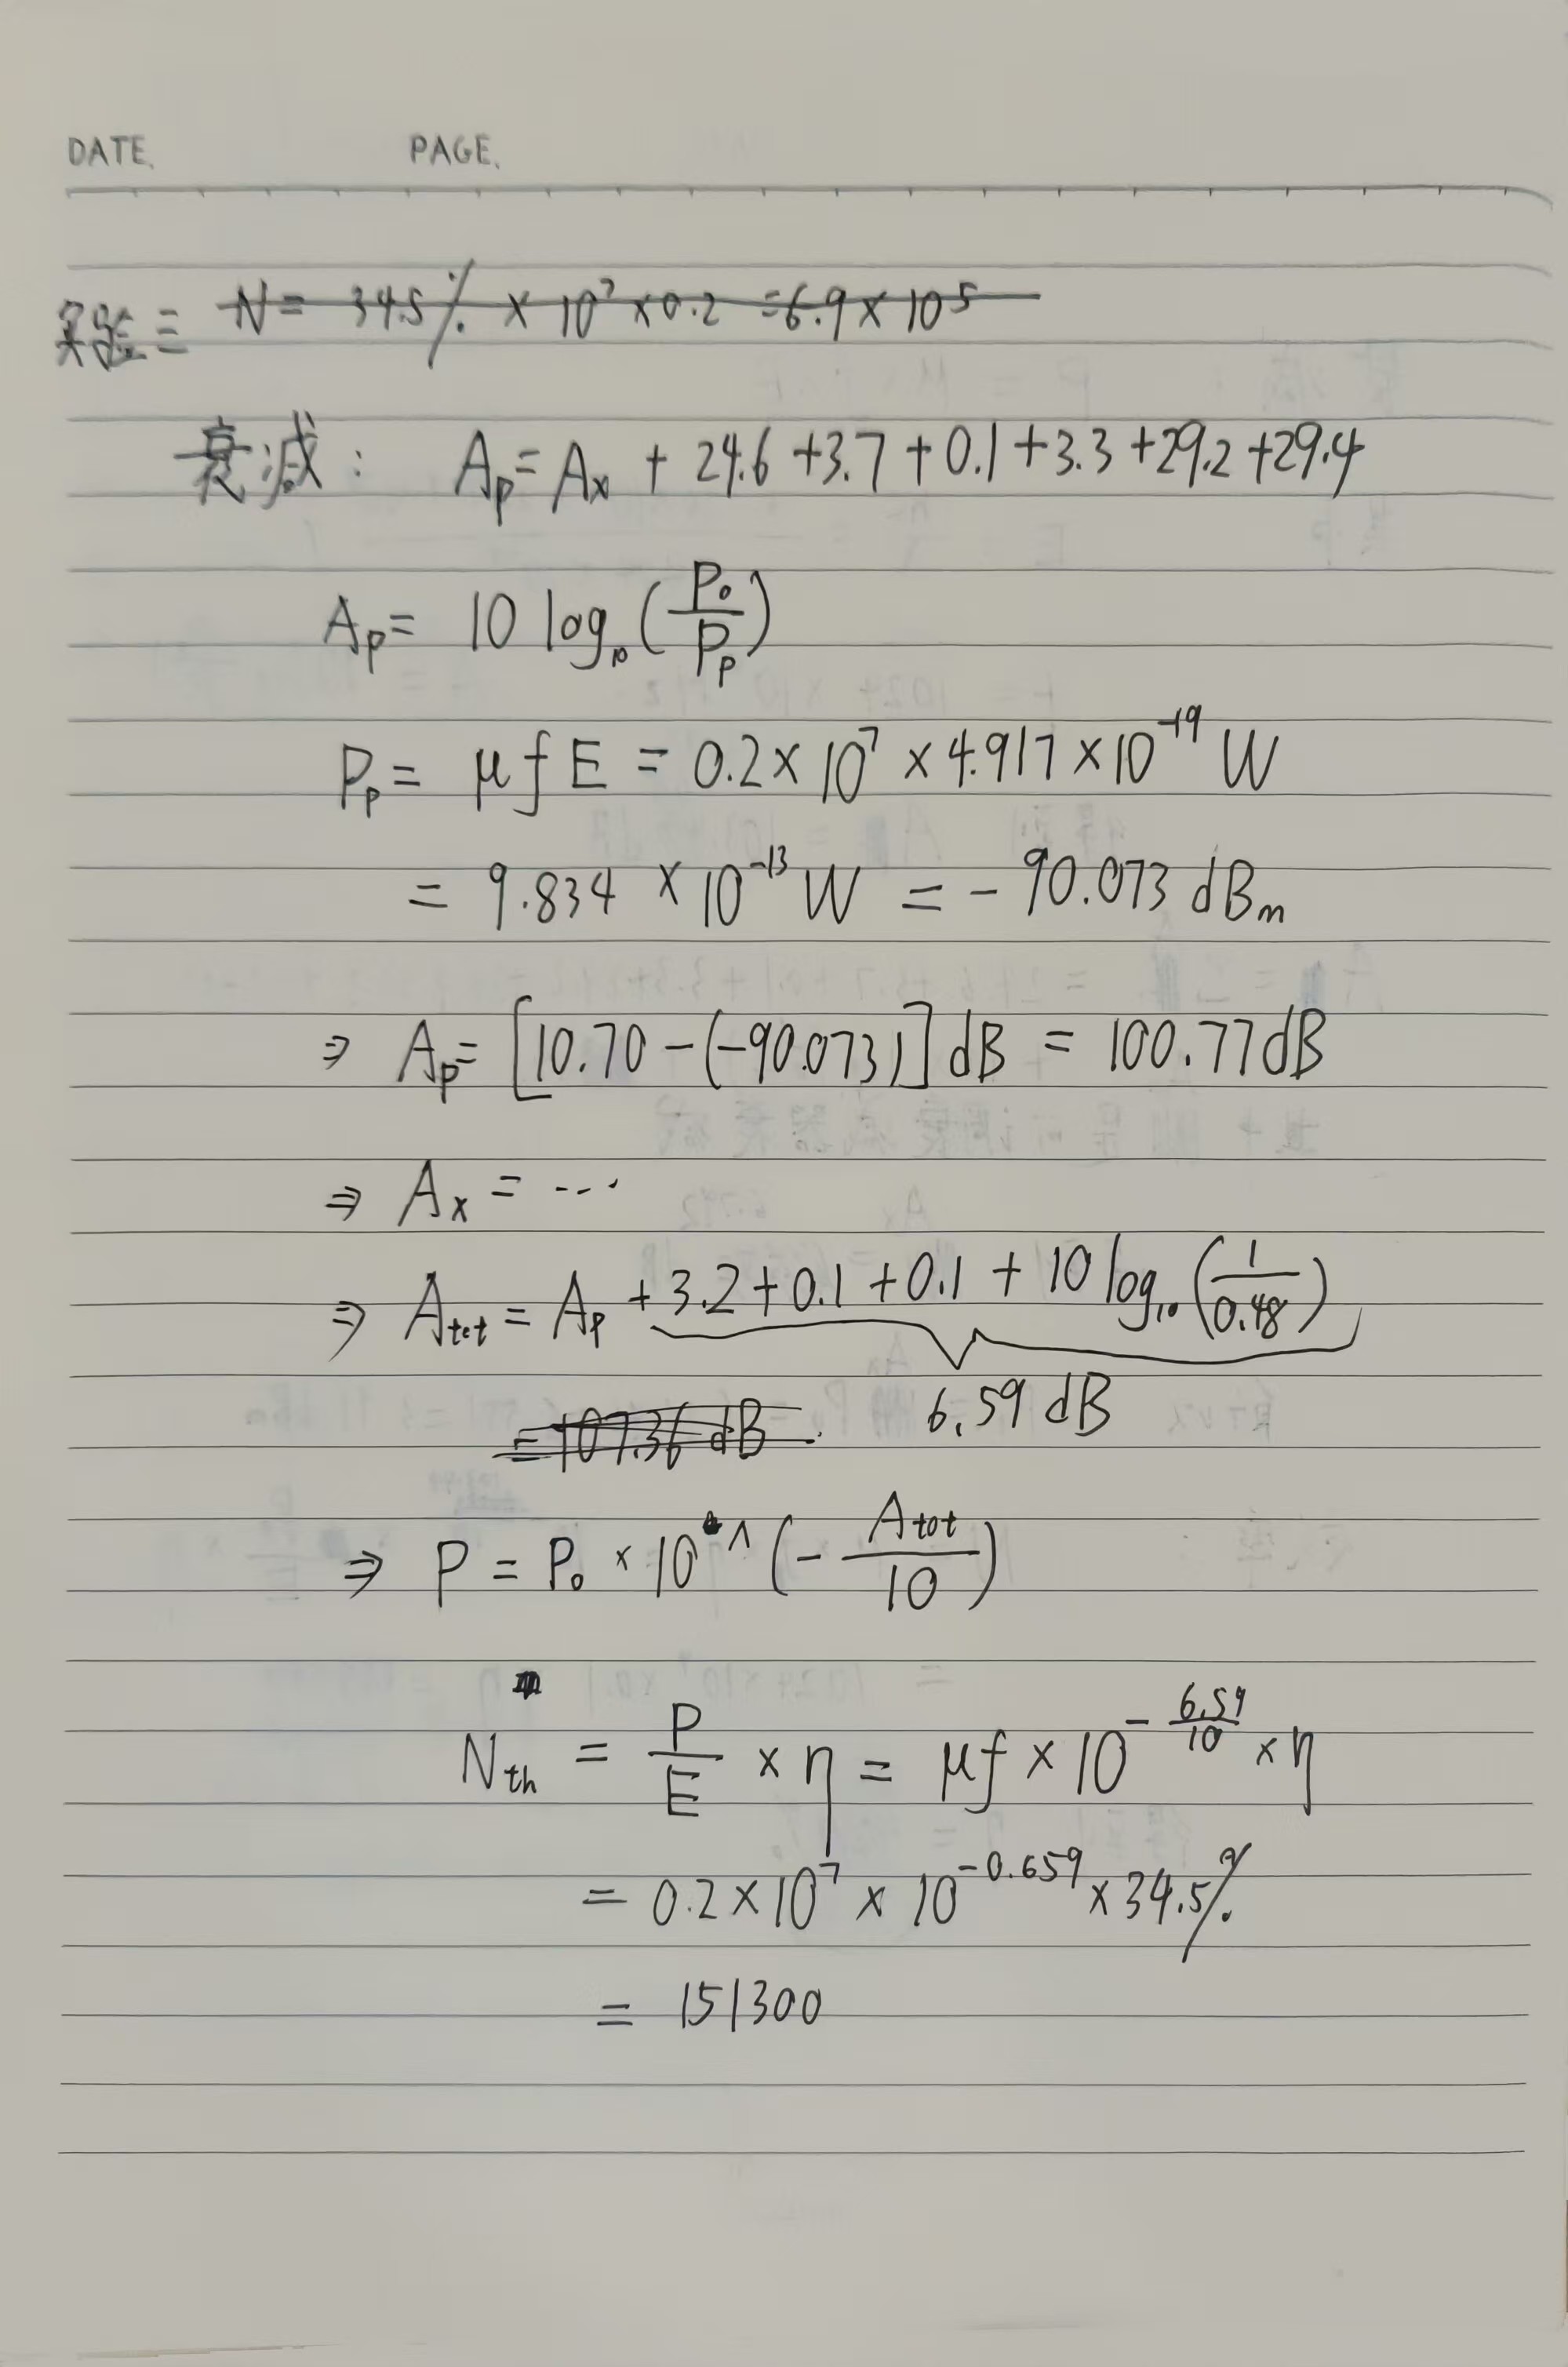 DATE. PAGE.
实验三 N = 34.5% × 10^7 × 0.2 = 6.9 × 10^5
衰减: Ap = Ax + 24.6 + 3.7 + 0.1 + 3.3 + 29.2 + 29.4
Ap = 10 log₁₀ (P₀/Pp)
Pp = μfE = 0.2 × 10^7 × 4.917 × 10^-19 W
= 9.834 × 10^-13 W = -90.073 dBm
⇒ Ap = [10.70 - (-90.073)] dB = 100.77 dB
⇒ Ax = ...
⇒ Atot = Ap + 3.2 + 0.1 + 0.1 + 10 log₁₀ (1/0.48)
= 107.36 dB 6.59 dB
⇒ P = P₀ × 10 ^ (- Atot/10)
Nth = P/E × η = μf × 10^(-6.59/10) × η
= 0.2 × 10^7 × 10^-0.659 × 34.5%
= 151300